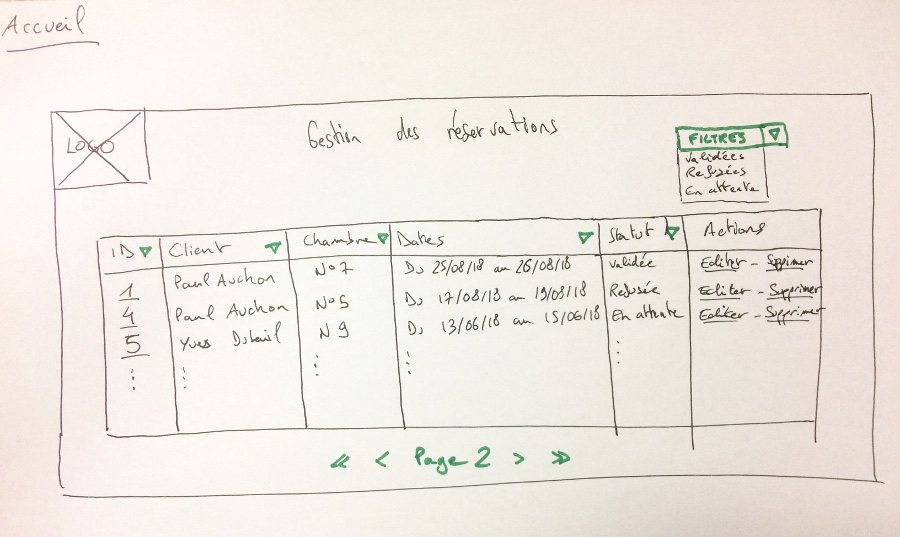 Accueil
LOGO
Gestion des réservations
FILTRES
Validées
Refusées
En attente
ID Client Chambre Dates Statut Actions
1 Paul Auchon N°7 Du 25/08/18 au 26/08/18 Validée Editer - Supprimer
4 Paul Auchon N°5 Du 17/08/18 au 19/08/18 Refusée Editer - Supprimer
5 Yves N 9 Du 13/06/18 au 15/06/18 En attente Editer - Supprimer
<< < Page 2 > >>